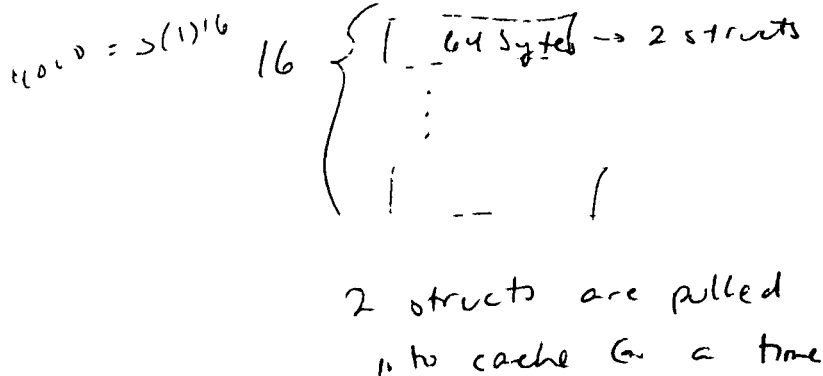 16 { | 64 Bytes → 2 structs
2 structs are pulled
to cache a time